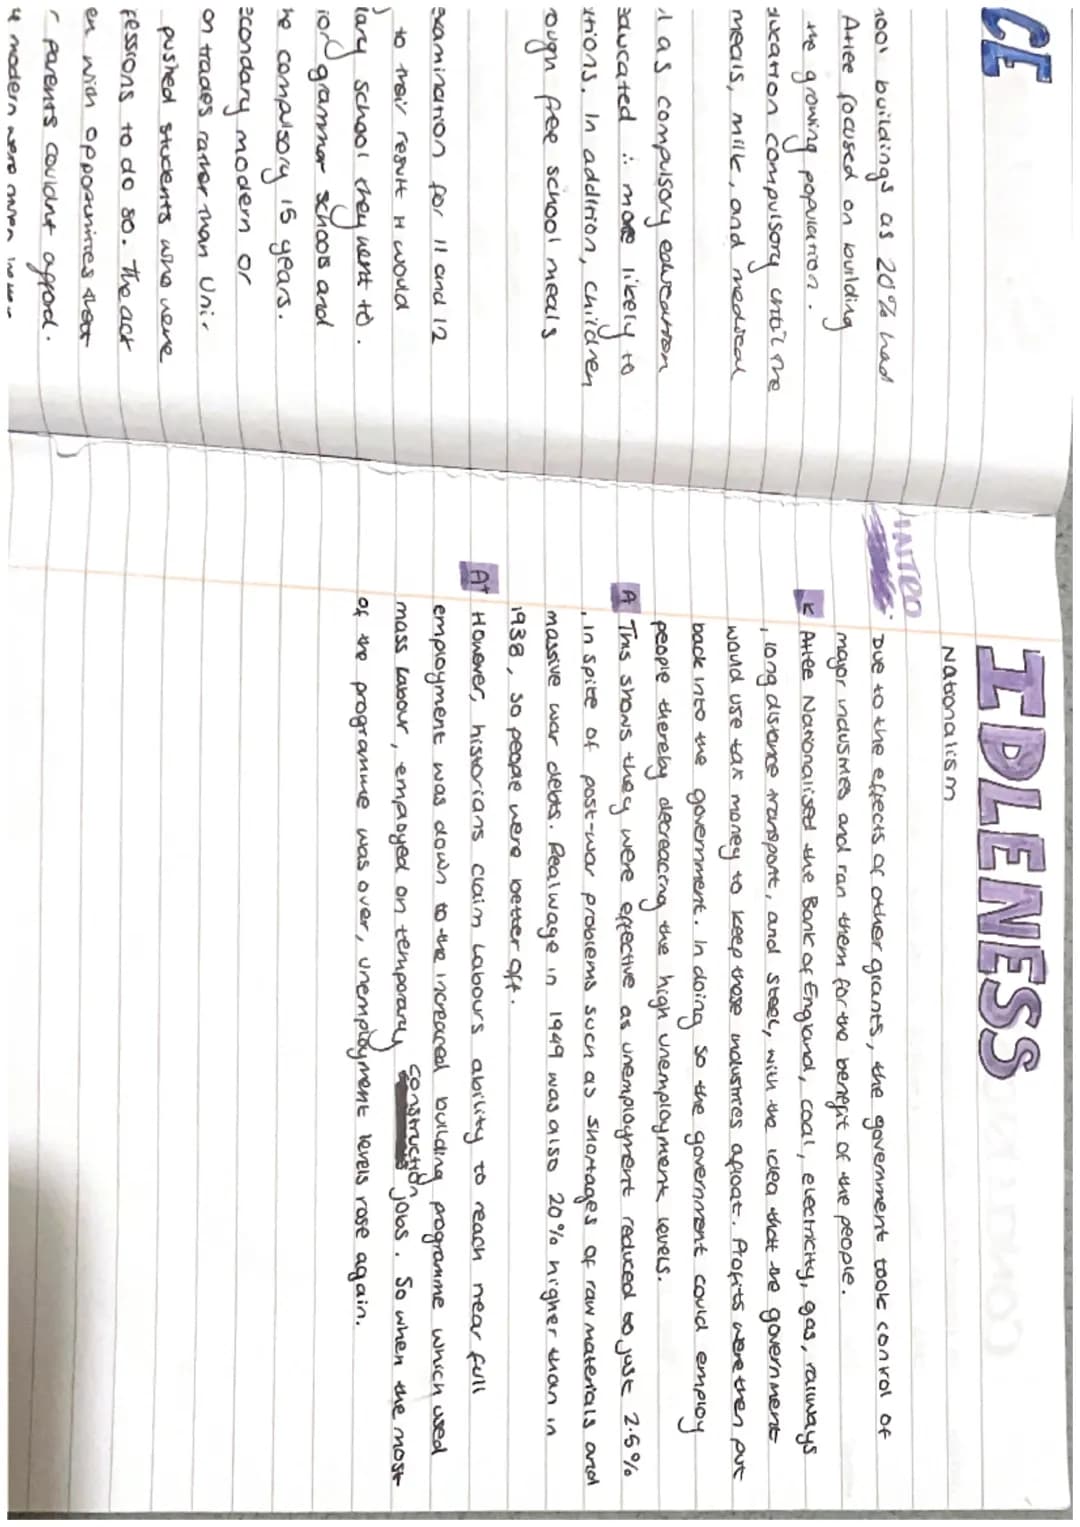 CE
1001 buildings as 20% had
Attee focused on building
the growing population.
ducation compulsory until the
meals, milk, and medical
l as compulsory education
educated ∴ more likely to
itions. In addition, children
rough free school meals
examination for 11 and 12
to their result it would
lary school they went to.
ior grammar schools and
he compulsory 15 years.
econdary modern or
on trades rather than Uni.
pushed students who were
fessions to do so. The act
en with opportunities that
r parents couldnt afford.
modern were
IDLENESS
Nationalism
Due to the effects of other giants, the government took control of
major industries and ran them for the benefit of the people.
K Attee Nationalised the Bank of England, coal, electricity, gas, railways
, long distance transport, and steel, with the idea that the government
would use tax money to keep those industries afloat. Profits were then put
back into the government. In doing so the government could employ
people thereby decreacing the high unemployment levels.
A This shows they were effective as unemployment reduced to just 2.5%
, in spite of post-war problems such as shortages of raw materials and
massive war debts. Real wage in 1949 was also 20% higher than in
1938, so people were better off.
A+ However, historians claim Labours ability to reach near full
employment was down to the increaced building programme which used
mass labour, employed on temporary construction jobs. So when the most
of the programme was over, unemployment levels rose again.